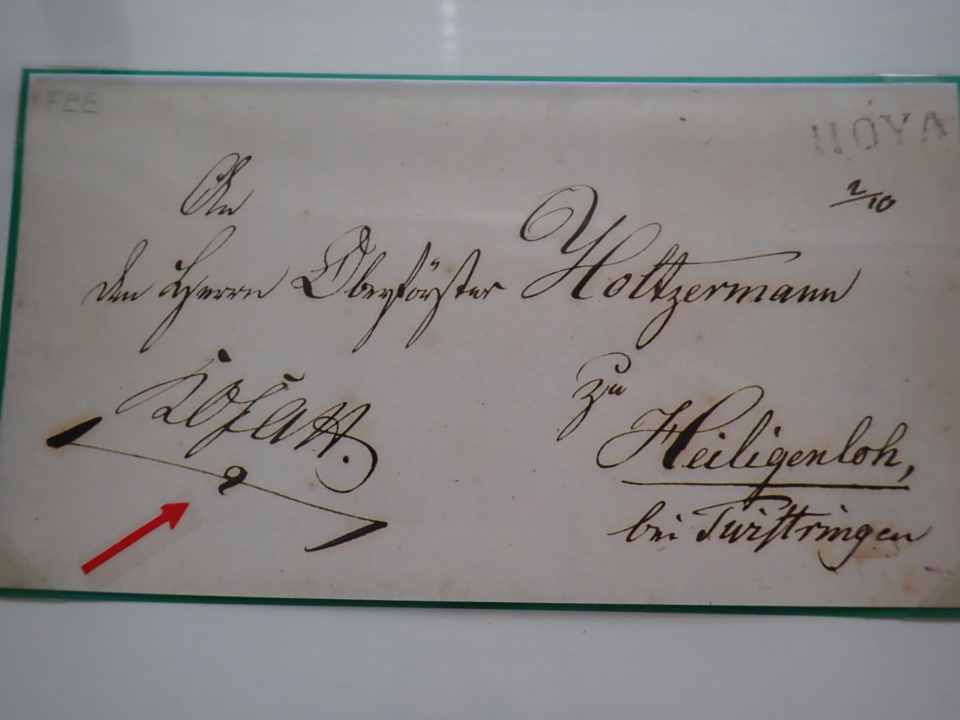 HOYA
2/10
An
den Herrn Oberförster Holtzermann
zu
Heiligenloh,
bei Twistringen